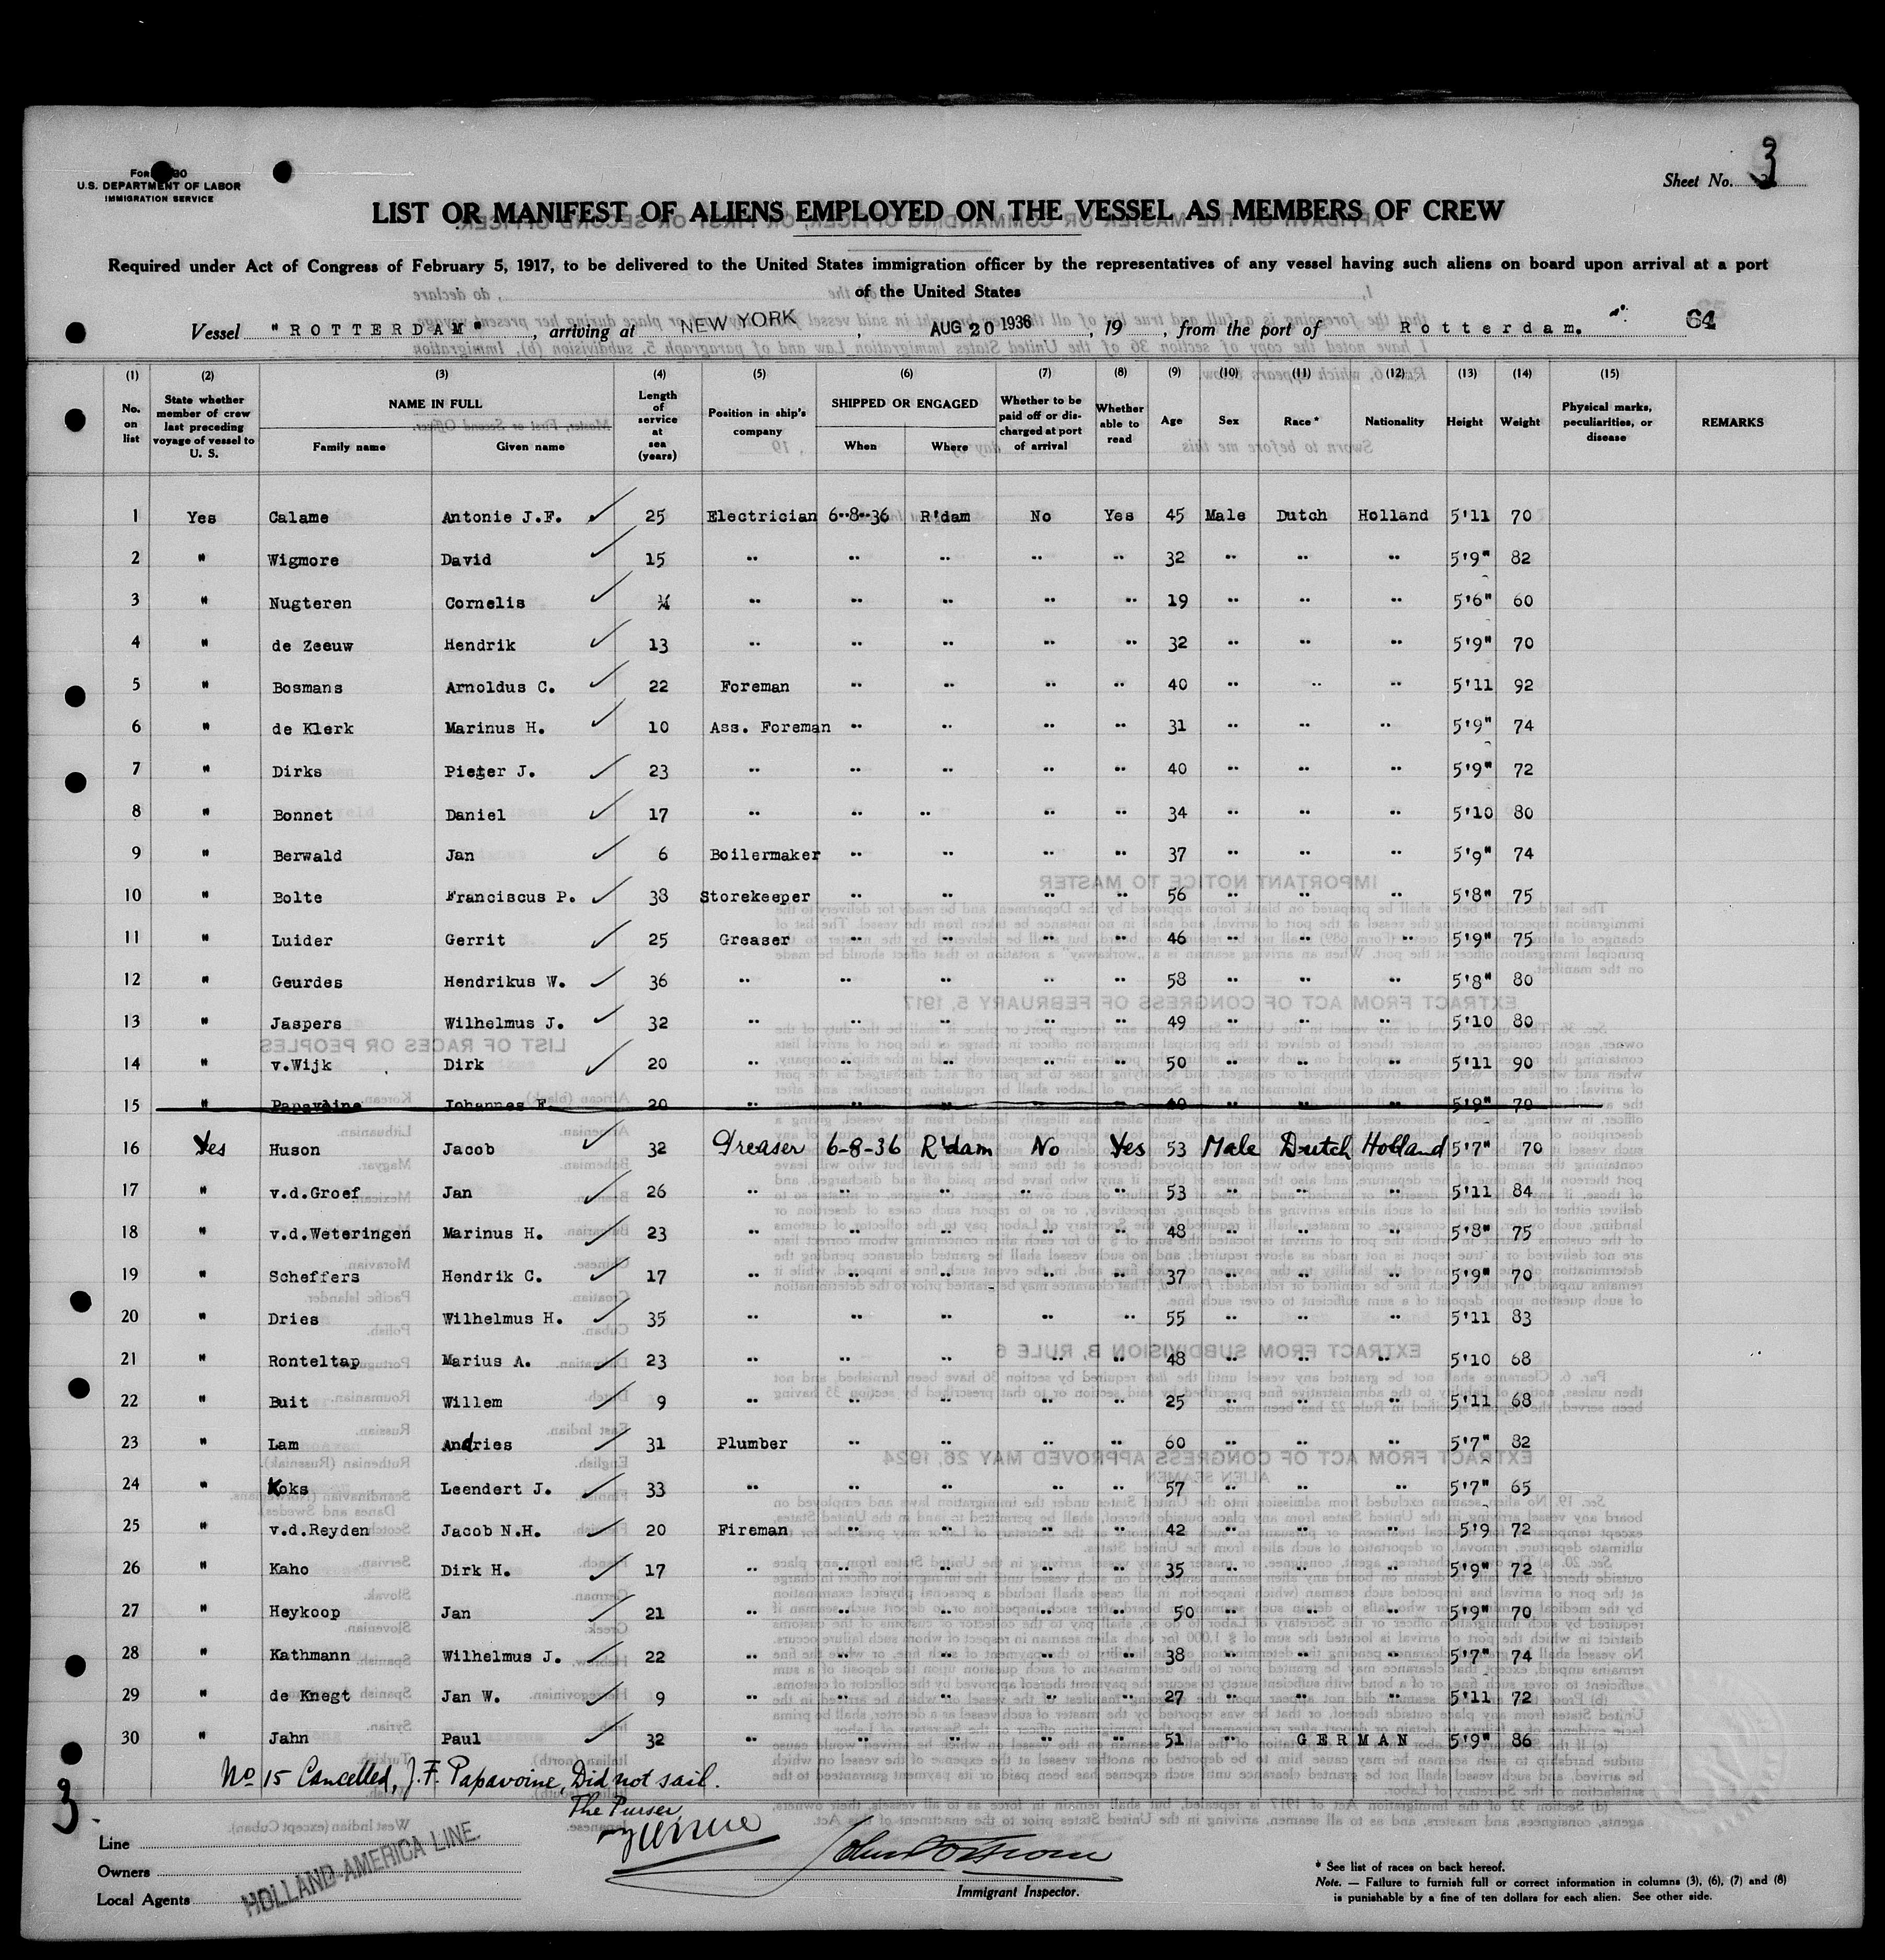 Sheet No. 3
U.S. DEPARTMENT OF LABOR
IMMIGRATION SERVICE
LIST OR MANIFEST OF ALIENS EMPLOYED ON THE VESSEL AS MEMBERS OF CREW
Required under Act of Congress of February 5, 1917, to be delivered to the United States immigration officer by the representatives of any vessel having such aliens on board upon arrival at a port
of the United States
Vessel "ROTTERDAM", arriving at NEW YORK, AUG 20 1936, 19 , from the port of Rotterdam. 64
(1) (2) (3) (4) (5) (6) (7) (8) (9) (10) (11) (12) (13) (14) (15)
No. on list | State whether member of crew last preceding voyage of vessel to U. S. | NAME IN FULL Family name Given name | Length of service at sea (years) | Position in ship's company | SHIPPED OR ENGAGED When Where | Whether to be paid off or discharged at port of arrival | Whether able to read | Age | Sex | Race* | Nationality | Height | Weight | Physical marks, peculiarities, or disease | REMARKS
1 Yes Calame Antonie J.F. 25 Electrician 6-8-36 R'dam No Yes 45 Male Dutch Holland 5'11 70
2 " Wigmore David 15 " " " " " 32 " " " 5'9" 82
3 " Nugteren Cornelis ¼ " " " " " 19 " " " 5'6" 60
4 " de Zeeuw Hendrik 13 " " " " " 32 " " " 5'9" 70
5 " Bosmans Arnoldus C. 22 Foreman " " " " 40 " " " 5'11 92
6 " de Klerk Marinus H. 10 Ass. Foreman " " " " 31 " " " 5'9" 74
7 " Dirks Pieter J. 23 " " " " " 40 " " " 5'9" 72
8 " Bonnet Daniel 17 " " " " " 34 " " " 5'10 80
9 " Berwald Jan 6 Boilermaker " " " " 37 " " " 5'9" 74
10 " Bolte Franciscus P. 38 Storekeeper " " " " 56 " " " 5'8" 75
11 " Luider Gerrit 25 Greaser " " " " 46 " " " 5'9" 75
12 " Geurdes Hendrikus W. 36 " " " " " 58 " " " 5'8" 80
13 " Jaspers Wilhelmus J. 32 " " " " " 49 " " " 5'10 80
14 " v.Wijk Dirk 20 " " " " " 50 " " " 5'11 90
15 " Papavoine Johannes F. 20 " " " " " 40 " " " 5'9" 70
16 Yes Huson Jacob 32 Greaser 6-8-36 R'dam No Yes 53 Male Dutch Holland 5'7" 70
17 " v.d.Groef Jan 26 " " " " " 53 " " " 5'11 84
18 " v.d.Weteringen Marinus H. 23 " " " " " 48 " " " 5'8" 75
19 " Scheffers Hendrik C. 17 " " " " " 37 " " " 5'9" 70
20 " Dries Wilhelmus H. 35 " " " " " 55 " " " 5'11 83
21 " Ronteltap Marius A. 23 " " " " " 48 " " " 5'10 68
22 " Buit Willem 9 " " " " " 25 " " " 5'11 68
23 " Lam Andries 31 Plumber " " " " 60 " " " 5'7" 82
24 " Koks Leendert J. 33 " " " " " 57 " " " 5'7" 65
25 " v.d.Reyden Jacob N.H. 20 Fireman " " " " 42 " " " 5'9 72
26 " Kaho Dirk H. 17 " " " " " 35 " " " 5'9" 72
27 " Heykoop Jan 21 " " " " " 50 " " " 5'9" 70
28 " Kathmann Wilhelmus J. 22 " " " " " 38 " " " 5'7" 74
29 " de Knegt Jan W. 9 " " " " " 27 " " " 5'11 72
30 " Jahn Paul 32 " " " " " 51 " GERMAN 5'9" 86
No 15 Cancelled, J.F. Papavoine, Did not sail.
The Purser,
3
Line
Owners
Local Agents
HOLLAND-AMERICA LINE.
Immigrant Inspector.
* See list of races on back hereof.
Note. — Failure to furnish full or correct information in columns (3), (6), (7) and (8)
is punishable by a fine of ten dollars for each alien. See other side.